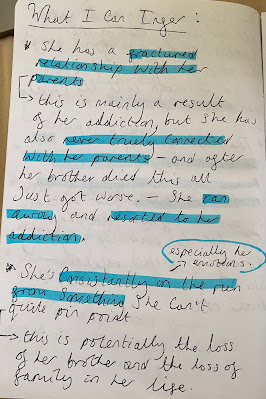 What I Can Infer:
* She has a fractured
relationship with her
parents
→ this is mainly a result
of her addiction, but she has
also never truly connected
with her parents - and after
her brother died this all
Just got worse. - She ran
away and resorted to her
addiction.
especially her
→ emotions.
* She's Consistantly on the run
from something She Can't
quite pin point.
→ this is potentially the loss
of her brother and the loss of
family in her life.